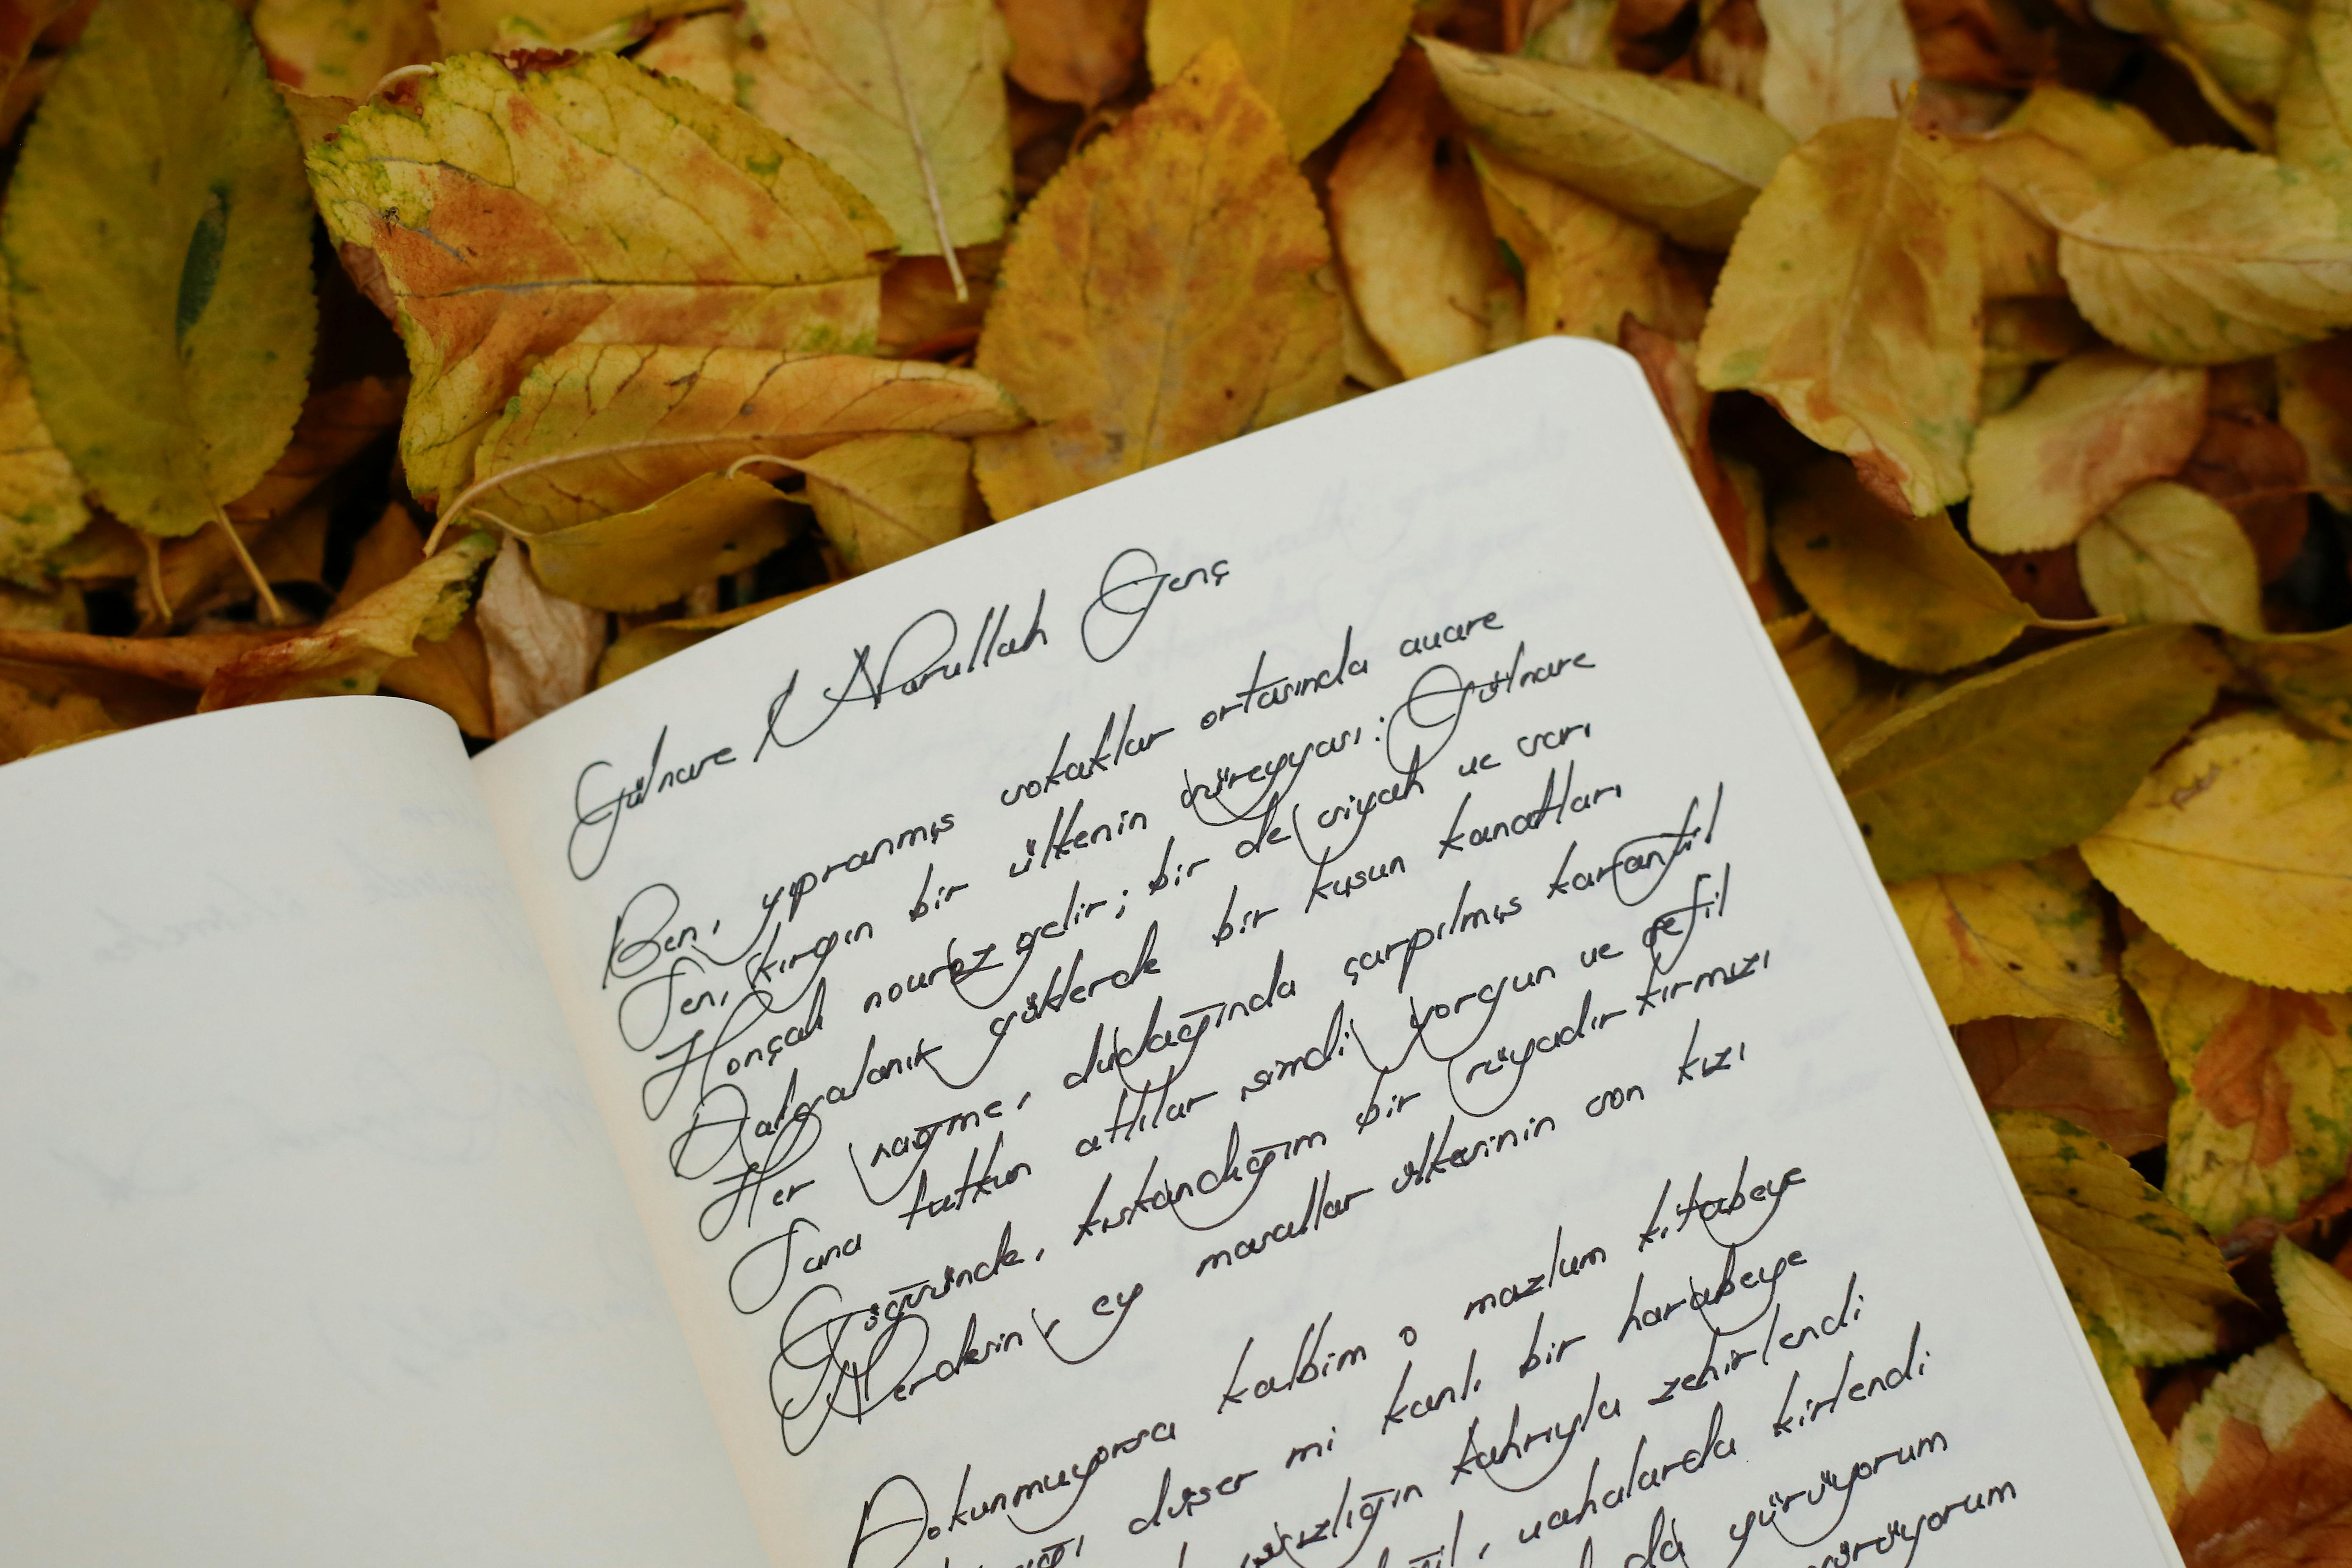 Gülnare / Nurullah Genç
Ben, yıpranmış sokaklar ortasında avare
Sen, kırgın bir ülkenin süreyyası: Gülnare
Hançalı novruz gelir; bir de siyah ve sarı
Dalgalanık göklerde bir kuşun kanatları
Her nağme, dudağında çarpılmış karanfil
Sana tutkun atlılar şimdi yorgun ve sefil
Göğsünde, kıskandığım bir rüyadır kırmızı
Nerdesin, ey masallar ülkesinin son kızı
Dokunmuyorsa kalbim o mazlum kitabeye
düşer mi kanlı bir harabeye
kahrıyla zehirlendi
vahalarda kirlendi
yürüyorum